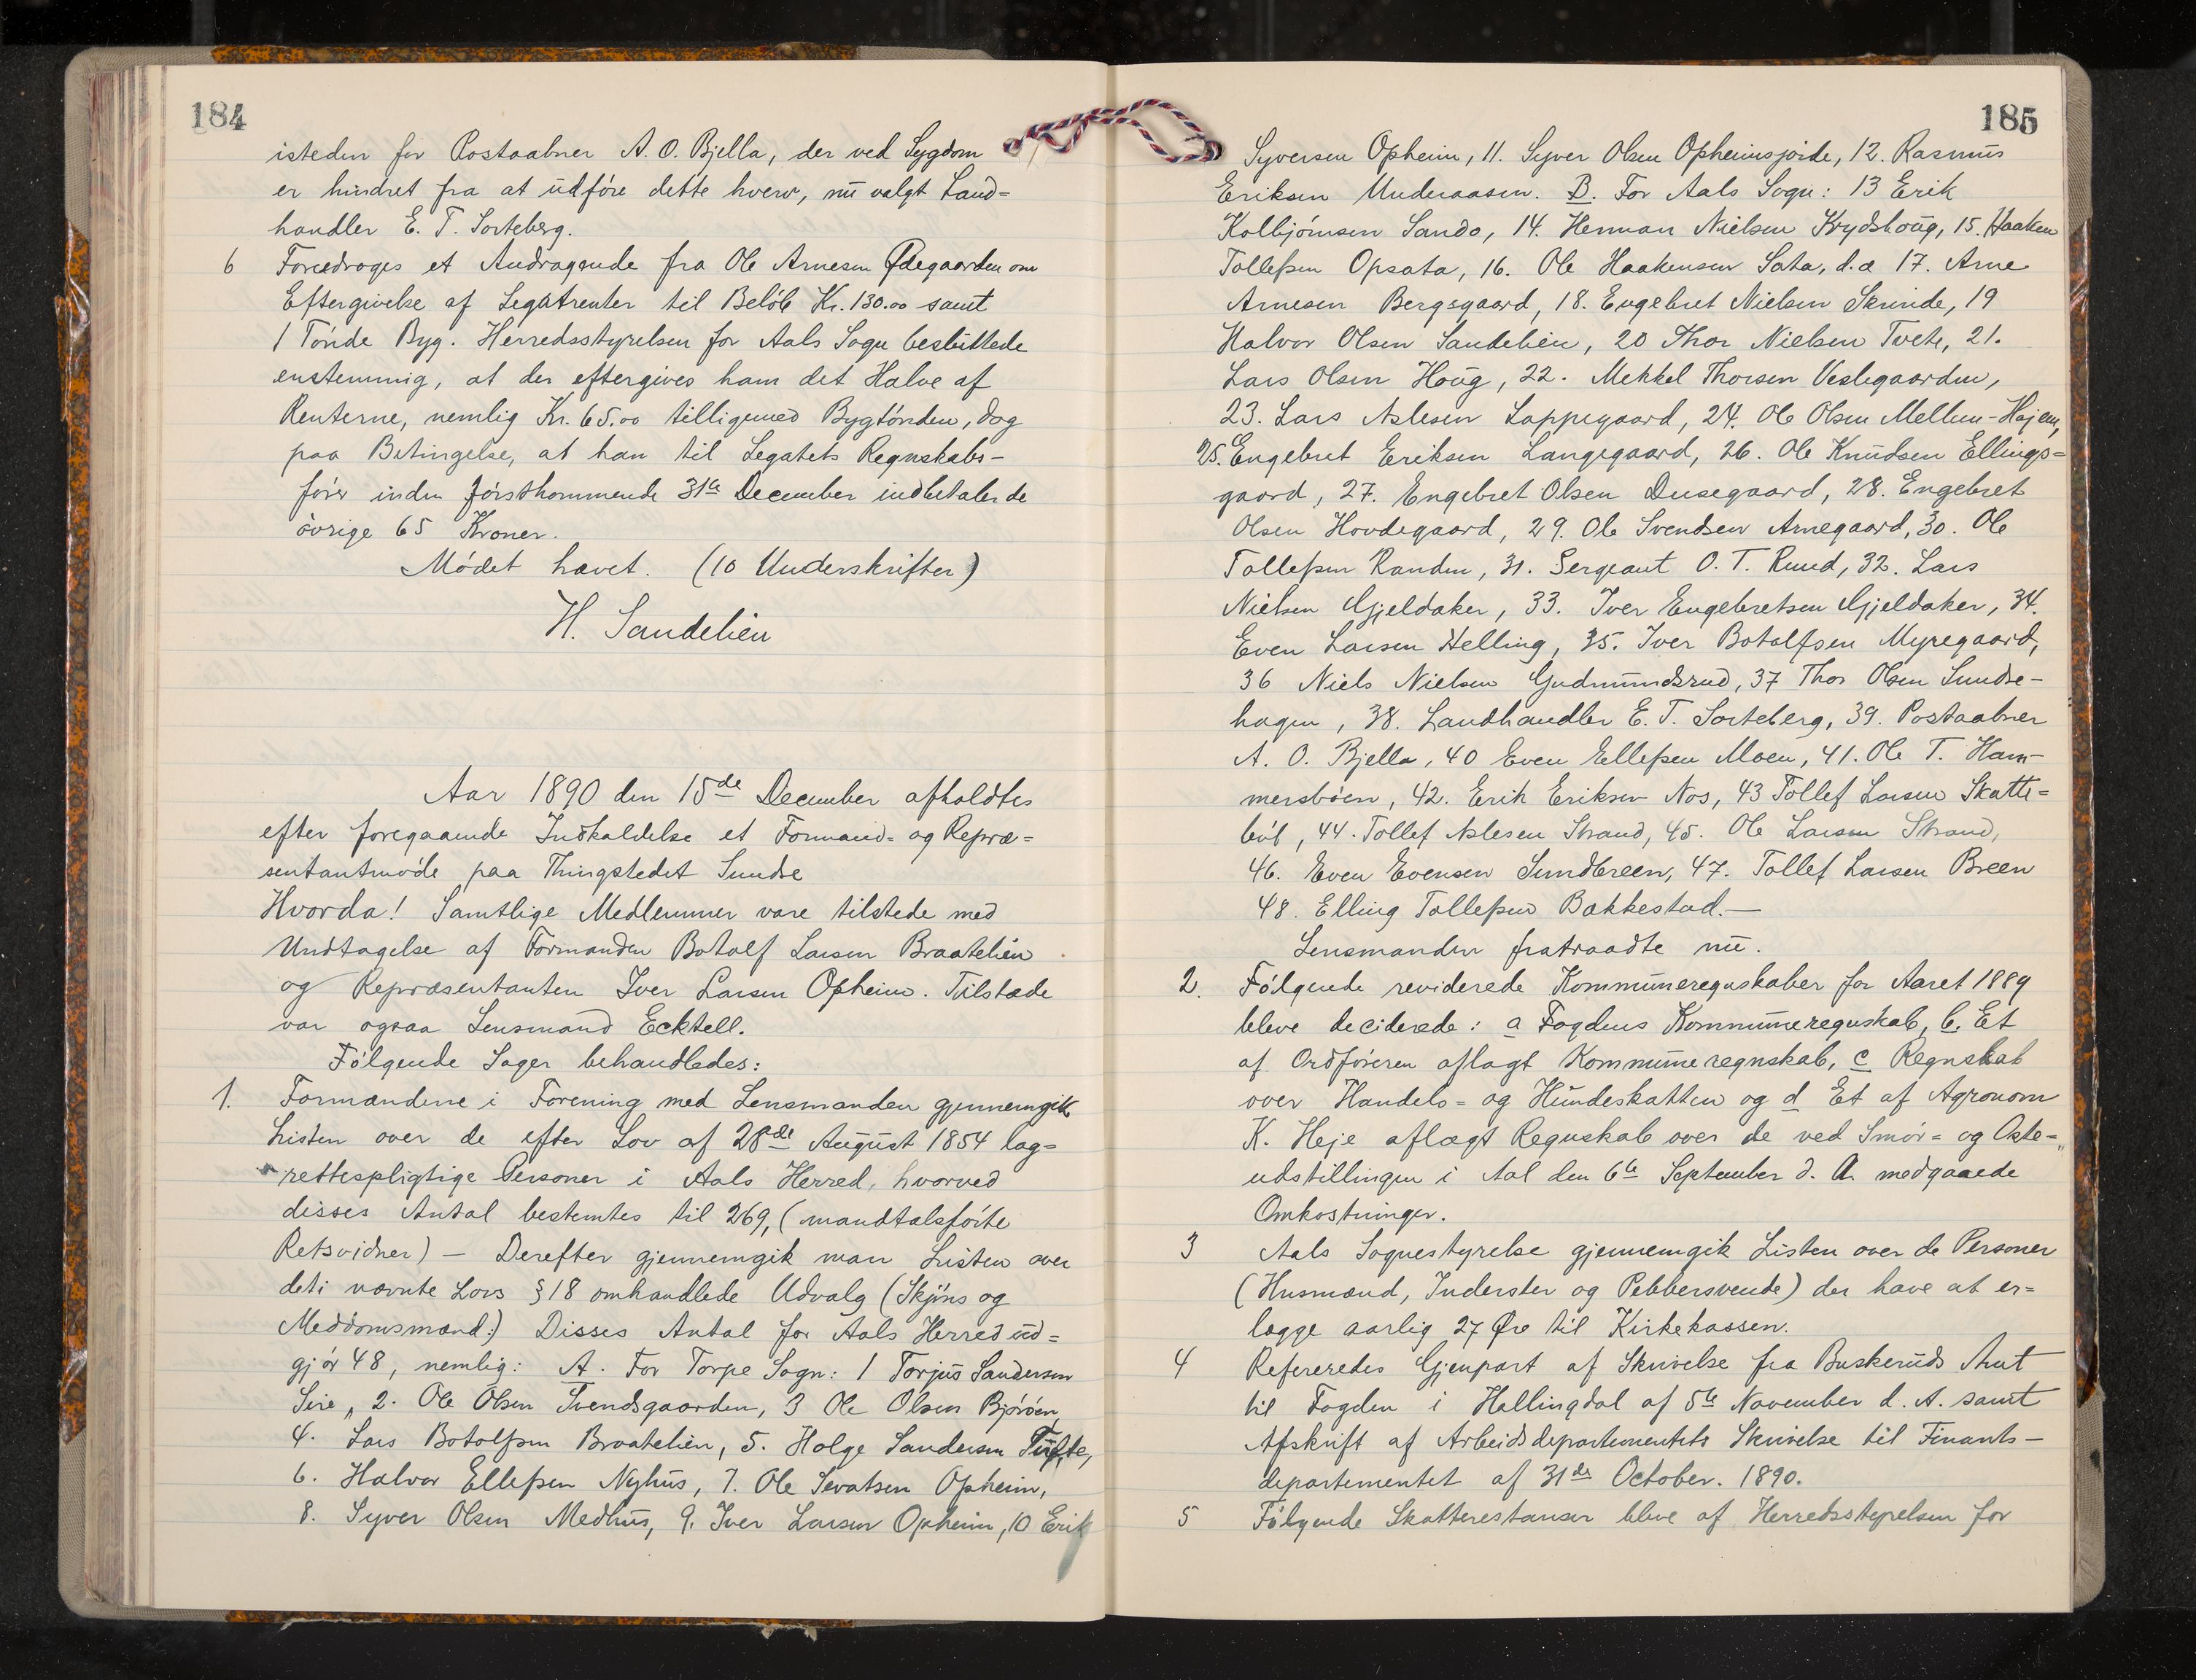 184
isteden for Postaabner A. O. Bjella, der ved Sygdom
er hindret fra at udføre dette hverv, nu valgt Land=
handler E. T. Sorteberg.
6 Foredroges et Andragende fra Ole Arnesen Ødegaarden om
Eftergivelse af Legatrenter til Beløb Kr. 130.00 samt
1 Tønde Byg. Herredsstyrelsen for Aals Sogn besluttede
enstemmig, at der eftergives ham det Halve af
Renterne, nemlig Kr. 65.00 tilligemed Bygtønden, dog
paa Betingelse, at han til Legatets Regnskabs-
fører inden førstkommende 31te December indbetaler de
øvrige 65 Kroner.
Mødet hævet. (10 Underskrifter)
H. Sandelien
Aar 1890 den 15de December afholdtes
efter foregaaende Indkaldelse et Formand= og Repræ=
sentantmøde paa Thingstedet Sundre
Hvorda! Samtlige Medlemmer vare tilstede med
Undtagelse af Formanden Botolf Larsen Braatelien
og Repræsentanten Iver Larsen Opheim. Tilstæde
var ogsaa Lensmand Ecktell.
Følgende Sager behandledes:
1. Formændene i Forening med Lensmanden gjennemgik
Listen over de efter Lov af 28de August 1854 lag=
rettespligtige Personer i Aals Herred, hvorved
disses Antal bestemtes til 269, (mandtalsførte
Retsvidner) — Derefter gjennemgik man Listen over
det i nævnte Lovs § 18 omhandlede Udvalg (Skjøns og
Meddomsmænd:) Disses Antal for Aals Herred ud=
gjør 48, nemlig: A. For Torpe Sogn: 1 Torjus Sandersen
Sire, 2. Ole Olsen Svendsgaarden, 3 Ole Olsen Bjøróen,
4. Lars Botolfsen Braatelien, 5. Holge Sandersen Tufte,
6. Halvor Ellefsen Nyhus, 7. Ole Sevatsen Opheim,
8. Syver Olsen Medhus, 9. Iver Larsen Opheim, 10 Erik
185
Syversen Opheim, 11. Syver Olsen Opheimsjorde, 12. Rasmus
Eriksen Underaasen. B. For Aals Sogn: 13 Erik
Kolbjørnsen Sando, 14. Herman Nielsen Krydshoug, 15. Haaken
Tollefsen Opsata, 16. Ole Haakensen Sata, d.æ 17. Arne
Arnesen Bergsgaard, 18. Engebret Nielsen Skrinde, 19
Halvor Olsen Sandelien, 20 Thor Nielsen Tvete, 21.
Lars Olsen Houg, 22. Mekkel Thorsen Veslegaarden,
23. Lars Aslesen Lappegaard, 24. Ole Olsen Mellum-Hajem,
25. Engebret Eriksen Langegaard, 26. Ole Knudsen Ellings=
gaard, 27. Engebret Olsen Dusegaard, 28. Engebret
Olsen Hovdegaard, 29. Ole Svendsen Arnegaard, 30. Ole
Tollefsen Randen, 31. Sergeant O. T. Ruud, 32. Lars
Nielsen Gjeldaker, 33. Iver Engebretsen Gjeldaker, 34.
Even Larsen Helling, 35. Iver Botolfsen Myregaard,
36 Niels Nielsen Gudmundsrud, 37 Thor Olsen Sundre-
hagen, 38. Landhandler E. T. Sorteberg, 39. Postaabner
A. O. Bjella, 40 Even Ellefsen Moen, 41. Ole T. Ham-
mersbøen, 42. Erik Eriksen Nos, 43 Tollef Larsen Skatte=
bøl, 44. Tollef Aslesen Strand, 45. Ole Larsen Strand,
46. Even Evensen Sundbreen, 47. Tollef Larsen Breen
48. Elling Tollefsen Bakkestad. —
Lensmanden fratraadte nu.
2. Følgende reviderede Kommuneregnskaber for Aaret 1889
bleve deciderede: a Fogdens Kommuneregnskab, b. Et
af Ordføreren aflagt Kommuneregnskab, c Regnskab
over Handels= og Hundeskatten og d Et af Agronom
K. Heje aflagt Regnskab over de ved Smør= og Oste=
udstillingen i Aal den 6te September d. A. medgaaede
Omkostninger.
3 Aals Sognestyrelse gjennemgik Listen over de Personer
(Husmænd, Inderster og Pebbersvende) der have at er=
lægge aarlig 27 Øre til Kirkekassen.
4 Refereredes Gjenpart af Skrivelse fra Buskeruds Amt
til Fogden i Hallingdal af 5te November d. A. samt
Afskrift af Arbeidsdepartementets Skrivelse til Finants-
departementet af 31de October. 1890.
5 Følgende Skatterestanser bleve af Herredsstyrelsen for